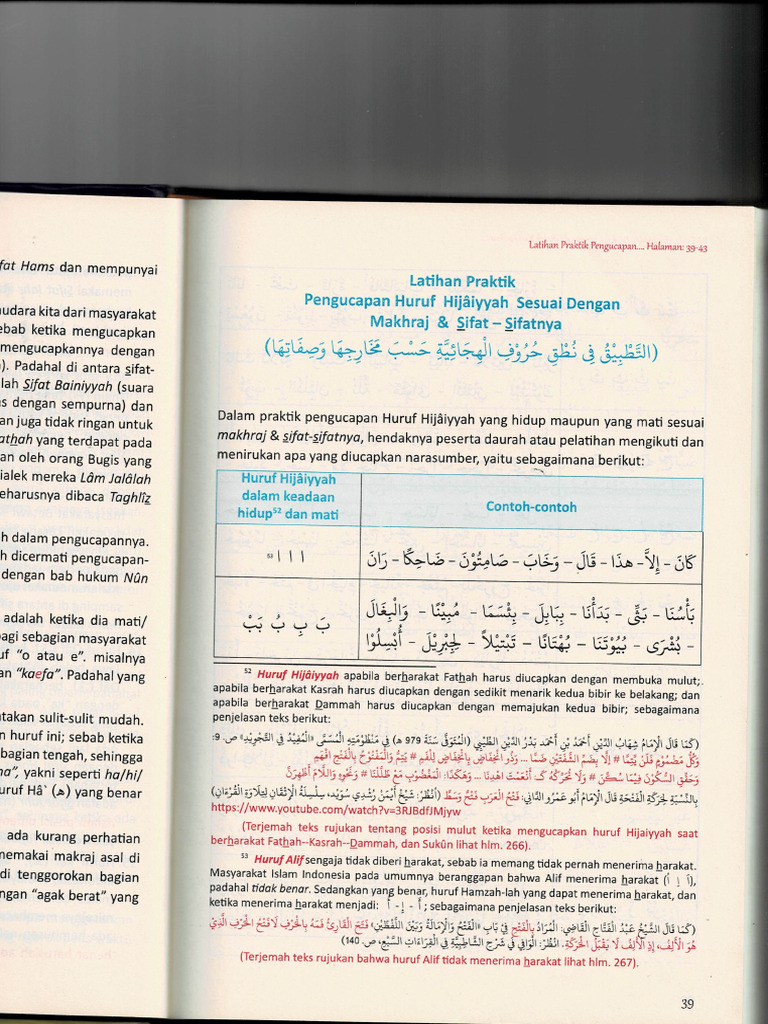 fat Hams dan mempunyai
udara kita dari masyarakat
ebab ketika mengucapkan
mengucapkannya dengan
). Padahal di antara sifat-
lah Sifat Bainiyyah (suara
s dengan sempurna) dan
an juga tidak ringan untuk
athah yang terdapat pada
an oleh orang Bugis yang
ialek mereka Lâm Jalâlah
eharusnya dibaca Taghlîz
h dalam pengucapannya.
h dicermati pengucapan-
dengan bab hukum Nûn
adalah ketika dia mati/
bagi sebagian masyarakat
uf “o atau e”. misalnya
an “kaefa”. Padahal yang
takan sulit-sulit mudah.
n huruf ini; sebab ketika
bagian tengah, sehingga
na”, yakni seperti ha/hi/
uruf Hâ` (ه) yang benar
ada kurang perhatian
memakai makraj asal di
di tenggorokan bagian
ngan “agak berat” yang
Latihan Praktik Pengucapan.... Halaman: 39-43
Latihan Praktik
Pengucapan Huruf Hijâiyyah Sesuai Dengan
Makhraj & Sifat – Sifatnya
(التَّطْبِيْقُ فِى نُطْقِ حُرُوْفِ الْهِجَائِيَّةِ حَسْبَ مَخَارِجِهَا وَصِفَاتِهَا)
Dalam praktik pengucapan Huruf Hijâiyyah yang hidup maupun yang mati sesuai
makhraj & sifat-sifatnya, hendaknya peserta daurah atau pelatihan mengikuti dan
menirukan apa yang diucapkan narasumber, yaitu sebagaimana berikut:
Huruf Hijâiyyah
dalam keadaan
hidup⁵² dan mati
Contoh-contoh
ا ا ا ⁵³
كَانَ - إِلاَّ - هذَا - قَالَ - وَخَابَ - صَامِتُوْنَ - ضَاحِكًا - رَانَ
بَ بِ بُ بَبْ
بَأْسُنَا - بَثِّى - بَدَأْنَا - بِبَابِلَ - بِئْسَمَا - مُبِيْنًا - وَالْبِغَالَ
- بُشْرَى - بُيُوْتَنَا - بُهْتَانًا - تَبْتِيْلًا - لِجِبْرِيْلَ - أُبْسِلُوْا
⁵² Huruf Hijâiyyah apabila berharakat Fathah harus diucapkan dengan membuka mulut;
apabila berharakat Kasrah harus diucapkan dengan sedikit menarik kedua bibir ke belakang; dan
apabila berharakat Dammah harus diucapkan dengan memajukan kedua bibir; sebagaimana
penjelasan teks berikut:
(كَمَا قَالَ الْإِمَامُ شِهَابُ الدِّيْنِ أَحْمَدُ بْنِ أَحْمَدَ بَدْرُ الدِّيْنِ الطِّيْبِي (الْمُتَوَفَّى سَنَةَ 979 هـ) فِي مَنْظُوْمَتِهِ الْمُسَمَّى «الْمُفِيْدُ فِي التَّجْوِيْدِ» ص. 9:
وَكُلُّ مَضْمُوْمٍ فَلَنْ يَتِمَّا # إِلَّا بِضَمِّ الشَّفَتَيْنِ ضَمًّا ... وَذُو انْخِفَاضٍ بِانْخِفَاضٍ لِلْفَمِ # يَتِمُّ وَالْمَفْتُوْحُ بِالْفَتْحِ افْهَمِ
وَحَقِّقِ السُّكُوْنَ فِيْمَا سُكِّنَ # وَلَا تُحَرِّكْهُ كَـ أَنْعَمْتَ اهْدِنَا ... وَهكَذَا: الْمَغْضُوْبِ مَعْ ظَلَّلْنَا # وَنَحْوِهِ وَاللَّامَ أَظْهِرَنَّ
بِالنِّسْبَةِ لِحَرَكَةِ الْفَتْحَةِ قَالَ الْإِمَامُ أَبُو عَمْرٍو الدَّانِي: فَتْحُ الْعَرَبِ فَتْحٌ وَسَطٌ (اُنْظُرْ: شَيْخُ أَيْمَنْ رُشْدِي سُوَيْد، سِلْسِلَةُ الْإِتْقَانِ لِتِلَاوَةِ الْقُرْءَانِ)
https://www.youtube.com/watch?v=3RJBdfJMjyw
(Terjemah teks rujukan tentang posisi mulut ketika mengucapkan huruf Hijaiyyah saat
berharakat Fathah--Kasrah--Dammah, dan Sukûn lihat hlm. 266).
⁵³ Huruf Alif sengaja tidak diberi harakat, sebab ia memang tidak pernah menerima harakat.
Masyarakat Islam Indonesia pada umumnya beranggapan bahwa Alif menerima harakat (اَ اِ اُ),
padahal tidak benar. Sedangkan yang benar, huruf Hamzah-lah yang dapat menerima harakat, dan
ketika menerima harakat menjadi: أَ - إِ - أُ ; sebagaimana penjelasan teks berikut:
(كَمَا قَالَ الشَّيْخُ عَبْدُ الْفَتَّاحِ الْقَاضِي: الْمُرَادُ بِالْفَتْحِ فِيْ بَابِ «الْفَتْحُ وَالْإِمَالَةُ وَبَيْنَ اللَّفْظَيْنِ» فَتْحُ الْقَارِئِ فَمَهُ بِالْحَرْفِ لَا فَتْحُ الْحَرْفِ الَّذِيْ
هُوَ الْأَلِفُ، إِذِ الْأَلِفُ لَا يَقْبَلُ الْحَرَكَةَ. اُنْظُرْ: الْوَافِي فِي شَرْحِ الشَّاطِبِيَّةِ فِي الْقِرَاءَاتِ السَّبْعِ، ص. 140)
(Terjemah teks rujukan bahwa huruf Alif tidak menerima harakat lihat hlm. 267).
39